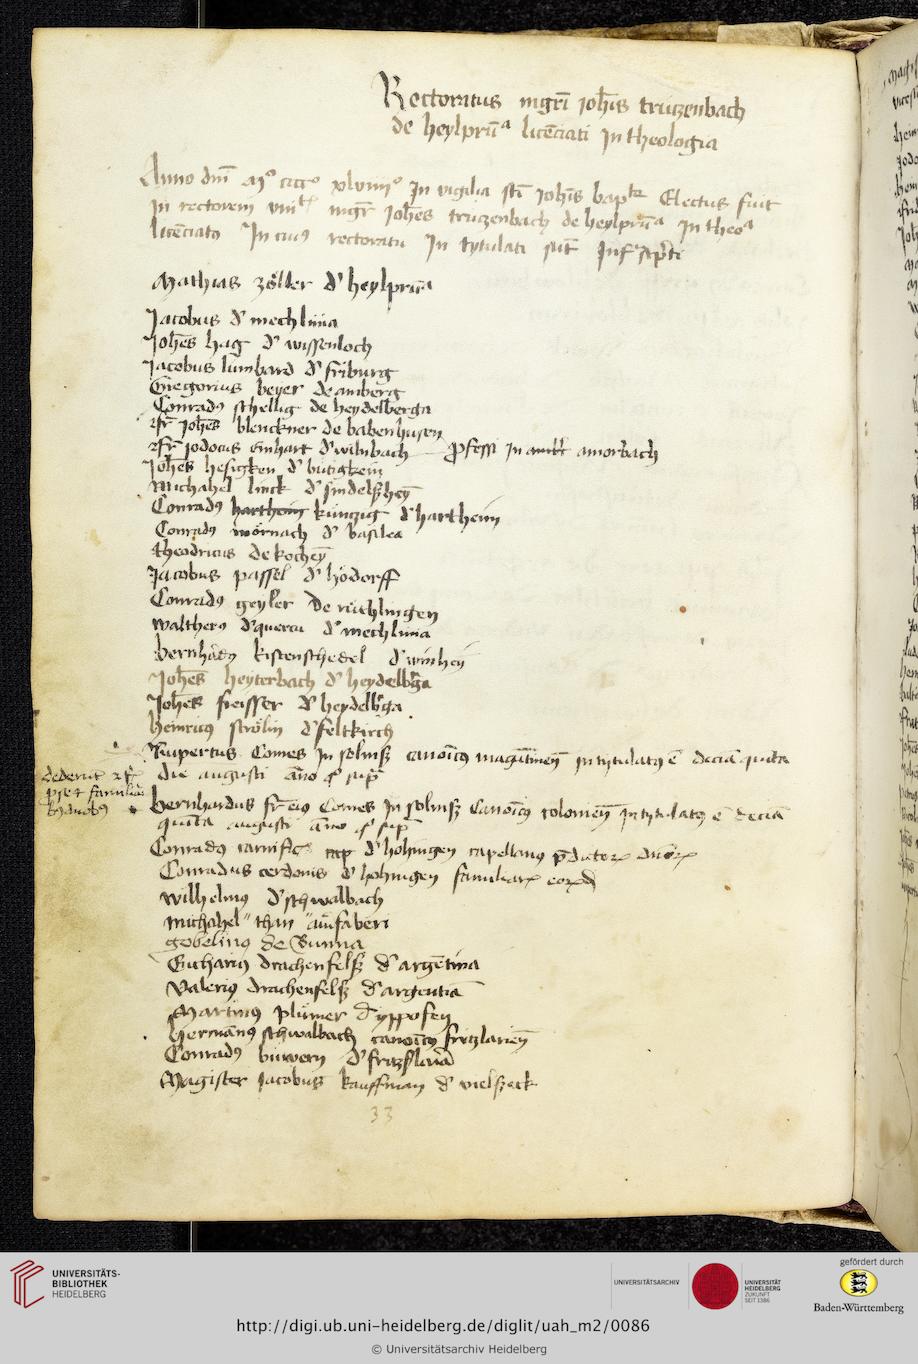 Rectoratus mgri̅ Joh̅is trutzenbach
de heylprun̅a lice̅ciati In theologia
Anno dm̅ Mº ccccº xlviiiiº In vigilia st̅i Joh̅is bapte̅ Electus fuit
In rectorem mgr̅ Joh̅es trutzenbach de heylprun̅a In theoa
lice̅ciatus In cuius rectoratu In tytulati su̅t Infrascp̅ti
Mathias zöller d' heylprun̅a
Jacobus d' mechlinia
Joh̅es hag d' wissenloch
Jacobus lumbard d' friburg
Gregorius beyer de amberg
Conradus schellig de heydelberga
Joh̅es blenckner de babenhusen
Jodocus Einhart d' wibnbach pfessi In amorbach
Joh̅es
Michahel linck d'
Conradus hartheim küntzig d' hartheim
Conradus mörnach d' basilea
theodricus de kochey̅
Jacobus passel d' hodorff
Conradus geyler de ruchlingen
Waltherus d'quercu d' mechlinia
bernhadus kistenschedel d'
Joh̅es heyterbach d' heydelbga
Joh̅es freisser d' heydelbga
heinricus strölin d' feltkirch
Rupertus Comes In solmß cano̅icus magu̅tinen̅ intytulatus e̅ decia̅ quinta
die augusti an̅o q° sup̅
dederut
familia̅
bernhardus fr̅ eius Comes In solmß Cano̅icus colonien̅ Intytulatus e̅ decia̅
quinta augusti an̅o q° sup̅
Conradus carnific̅ cap d' hohingen capellanus p̅dictor̅ dn̅or̅
Conradus cerdonis d' hohingen familiar̅ eor̅d̅
wilhelmus d' schwalbach
michahel than aurifabri
gobelinus de Bunna
Eucharius drachenfelß d' arge̅tina
Valerius drachenfelß d' argentia̅
Martinus plümer d' yppofen
hermanus schwalbach cano̅icus fritzlarien̅
Conradus d' fritzslaria
Magister Jacobus kauffman d' vielseck
33
UNIVERSITÄTS-
BIBLIOTHEK
HEIDELBERG
UNIVERSITÄTSARCHIV
UNIVERSITÄT
HEIDELBERG
ZUKUNFT
SEIT 1386
gefördert durch
Baden-Württemberg
http://digi.ub.uni-heidelberg.de/diglit/uah_m2/0086
© Universitätsarchiv Heidelberg